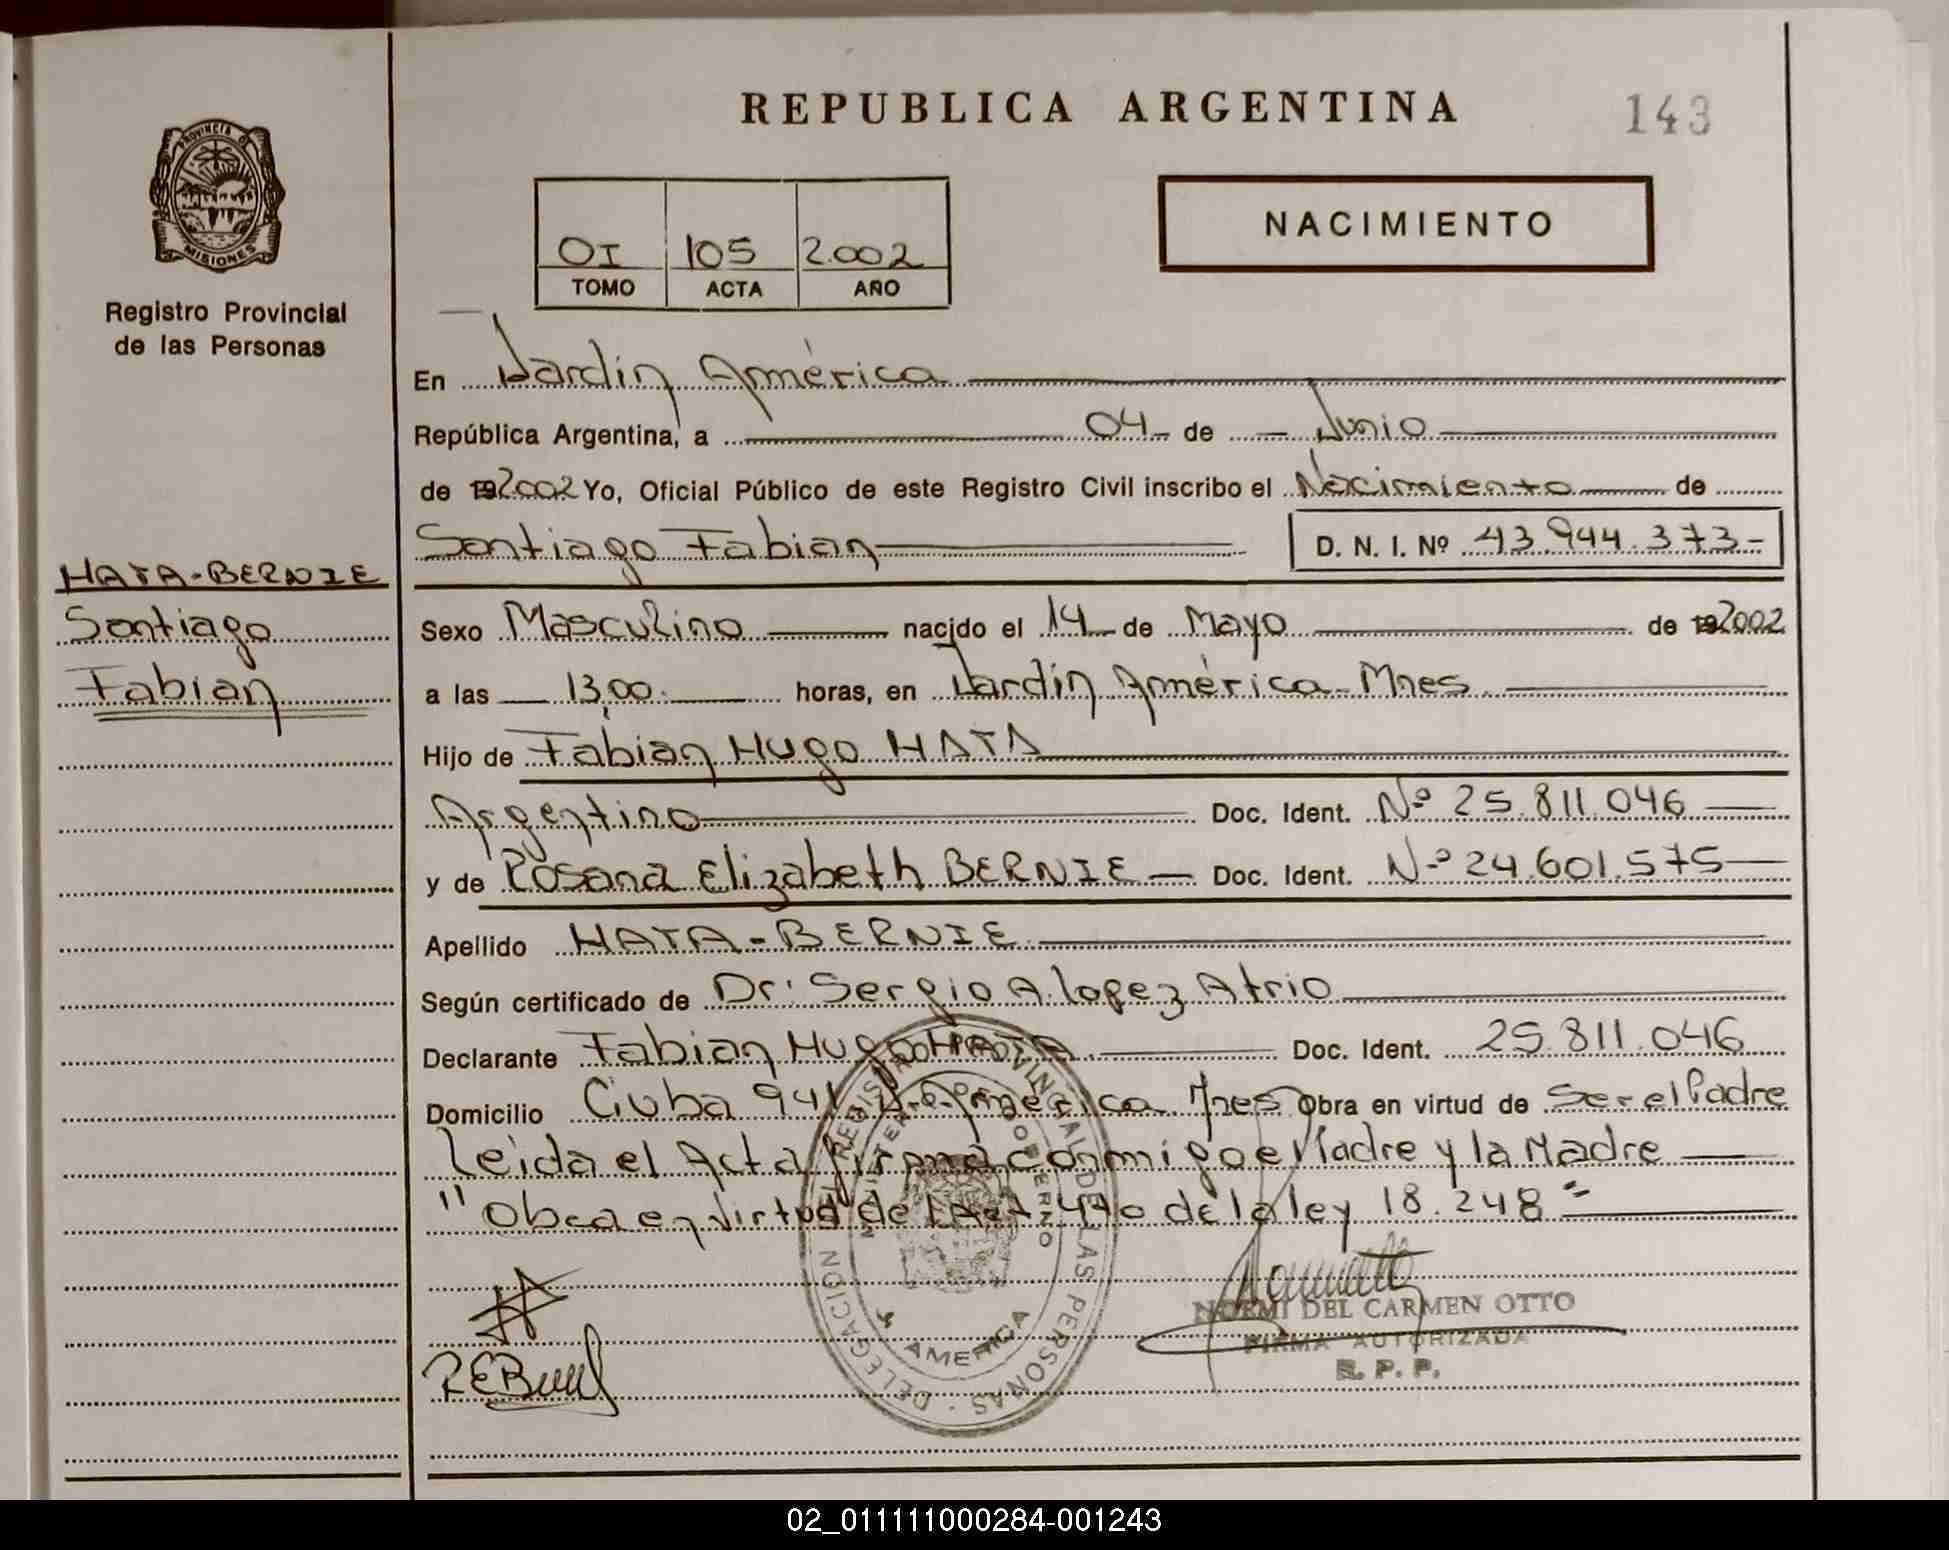 REPUBLICA ARGENTINA
143
PROVINCIA DE
MISIONES
Registro Provincial
de las Personas
NACIMIENTO
OI 105 2.002
TOMO ACTA AÑO
En Jardín América
República Argentina, a 04 de Junio
de 192002 Yo, Oficial Público de este Registro Civil inscribo el Nacimiento de
Santiago Fabian D. N. I. Nº 43.944.373-
HATA-BERNIE
Santiago
Fabian
Sexo Masculino nacido el 14 de Mayo de 192002
a las 13,00. horas, en Jardín América - Mnes.
Hijo de Fabian Hugo HATA
Argentino Doc. Ident. Nº 25.811.046
y de Rosana Elizabeth BERNIE Doc. Ident. Nº 24.601.575
Apellido HATA-BERNIE
Según certificado de Dr. Sergio A. Lopez Atrio
Declarante Fabian Hugo HATA Doc. Ident. 25.811.046
Domicilio Cuba 941 América Mnes Obra en virtud de Ser el Padre
Leida el Acta firma conmigo el Padre y la Madre
"Obra en virtud de Art. de la ley 18.248"
REGISTRO PROVINCIAL DE LAS PERSONAS - DELEGACION
GOBIERNO
AMERICA
NOEMI DEL CARMEN OTTO
FIRMA AUTORIZADA
R. P. P.
02_011111000284-001243